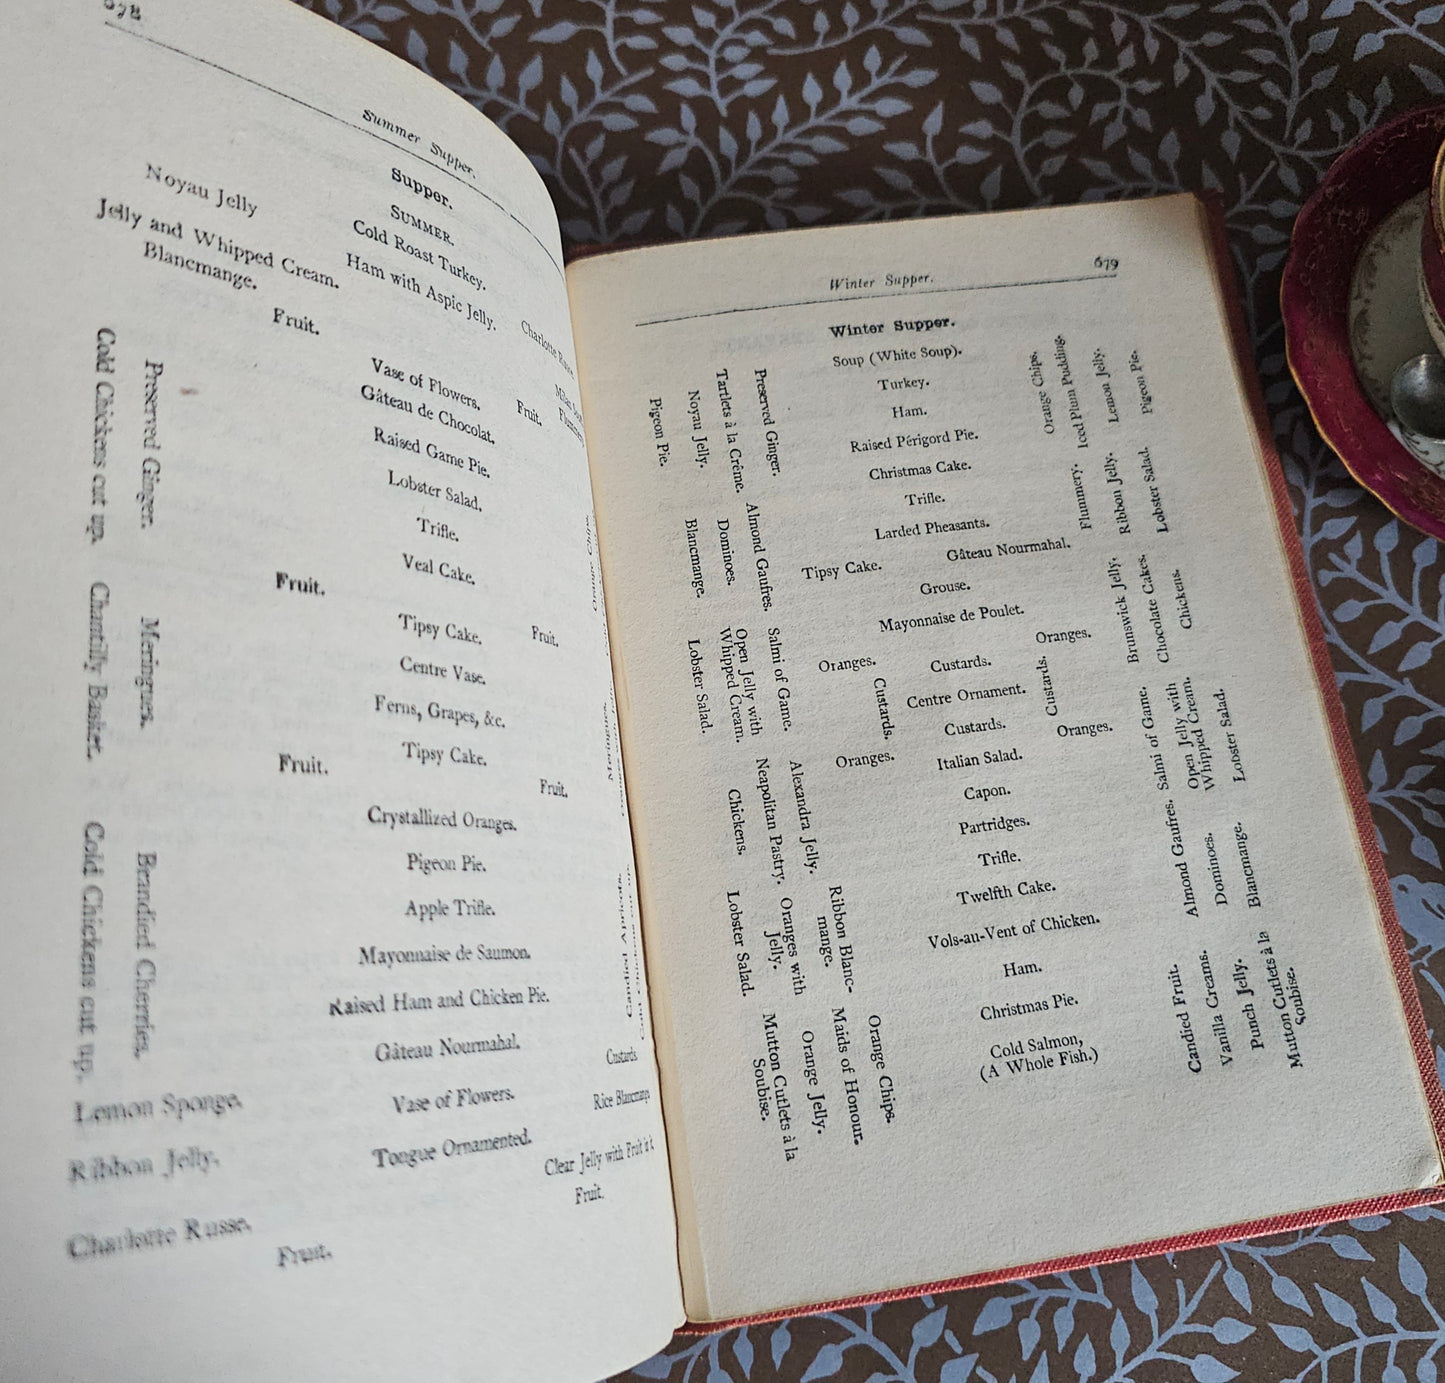 678
Summer Supper.
Supper.
SUMMER.
Noyau Jelly
Cold Roast Turkey.
Jelly and Whipped Cream.
Ham with Aspic Jelly.
Charlotte
Blancmange.
Fruit.
Vase of Flowers.
Fruit.
Flummery
Gâteau de Chocolat.
Cold Chickens cut up.
Preserved Ginger.
Raised Game Pie.
Lobster Salad.
Trifle.
Veal Cake.
Orange Chips.
Fruit.
Tipsy Cake.
Fruit.
Chantilly Basket.
Meringues.
Centre Vase.
Ferns, Grapes, &c.
Meringues.
Fruit.
Tipsy Cake.
Fruit.
Cold Chickens cut up.
Brandied Cherries.
Crystallized Oranges.
Pigeon Pie.
Apple Trifle.
Candied Apricots.
Cold Chickens cut up.
Mayonnaise de Saumon.
Raised Ham and Chicken Pie.
Gâteau Nourmahal.
Custards
Lemon Sponge.
Vase of Flowers.
Rice Blancmange
Ribbon Jelly.
Tongue Ornamented.
Clear Jelly with Fruit
Fruit.
Charlotte Russe.
Fruit.
Winter Supper.
679
Winter Supper.
Soup (White Soup).
Turkey.
Ham.
Raised Périgord Pie.
Christmas Cake.
Trifle.
Larded Pheasants.
Tipsy Cake.
Gâteau Nourmahal.
Grouse.
Mayonnaise de Poulet.
Oranges.
Custards.
Oranges.
Custards.
Centre Ornament.
Custards.
Custards.
Oranges.
Italian Salad.
Oranges.
Capon.
Partridges.
Trifle.
Twelfth Cake.
Vols-au-Vent of Chicken.
Ham.
Christmas Pie.
Cold Salmon,
(A Whole Fish.)
Preserved Ginger.
Tartlets à la Crême.
Noyau Jelly.
Pigeon Pie.
Almond Gaufres.
Dominoes.
Blancmange.
Salmi of Game.
Open Jelly with
Whipped Cream.
Lobster Salad.
Alexandra Jelly.
Neapolitan Pastry.
Chickens.
Ribbon Blanc-
mange.
Oranges with
Jelly.
Lobster Salad.
Orange Chips.
Maids of Honour.
Orange Jelly.
Mutton Cutlets à la
Soubise.
Orange Chips.
Iced Plum Pudding.
Lemon Jelly.
Pigeon Pie.
Flummery.
Ribbon Jelly.
Lobster Salad.
Brunswick Jelly.
Chocolate Cakes.
Chickens.
Salmi of Game.
Open Jelly with
Whipped Cream.
Lobster Salad.
Almond Gaufres.
Dominoes.
Blancmange.
Candied Fruit.
Vanilla Creams.
Punch Jelly.
Mutton Cutlets à la
Soubise.